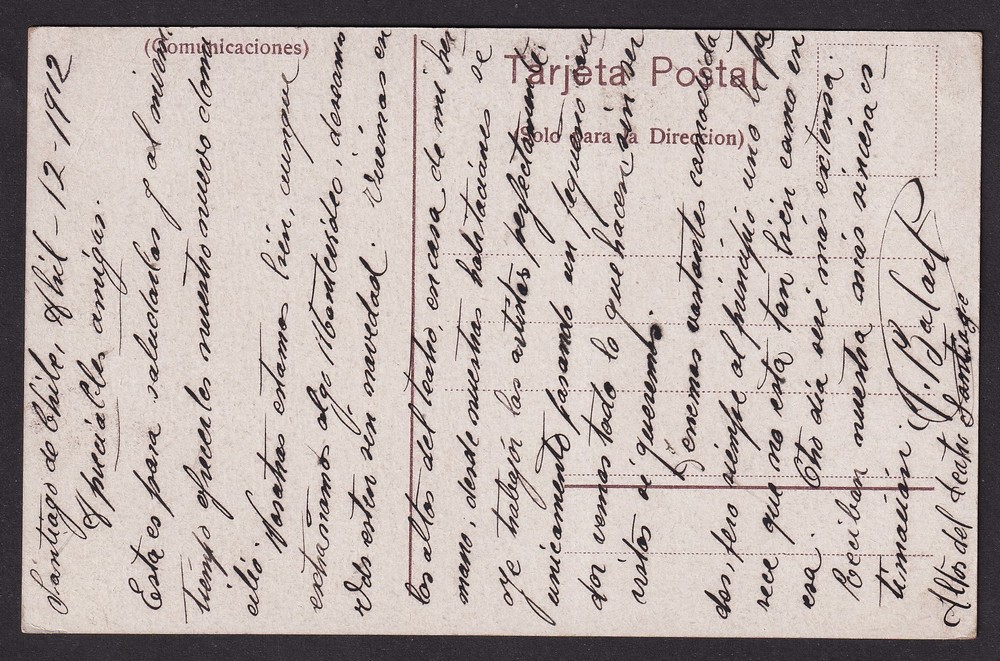 (Comunicaciones)
Tarjeta Postal
(Solo para la Direccion)
Santiago de Chile, Abril - 12 - 1912
Apreciables amigas.
Esta es para saludarlas y al mismo
tiempo ofrecerles nuestro nuevo domi
cilio.
Nosotras estamos bién, aunque
extrañamos algo; deseamos
Vds esten sin novedad. Vivimos en
los altos del teatro, en casa de mi her
mano; desde nuestras habitaciones se
oye trabajar los artistas perfectamente
unicamente pasando un pequeño
dor vemos todo lo que hácen sin ser
vistas si queremos.
Tenemos bastantes comodida
des, pero siempre al principio uno le pa
rece que no está tan bién como en
casa. Otro dia seré mas extensa.
Reciban nuestra más sincéra es
timación.
J. Balart
Altos del Teatro Santiago